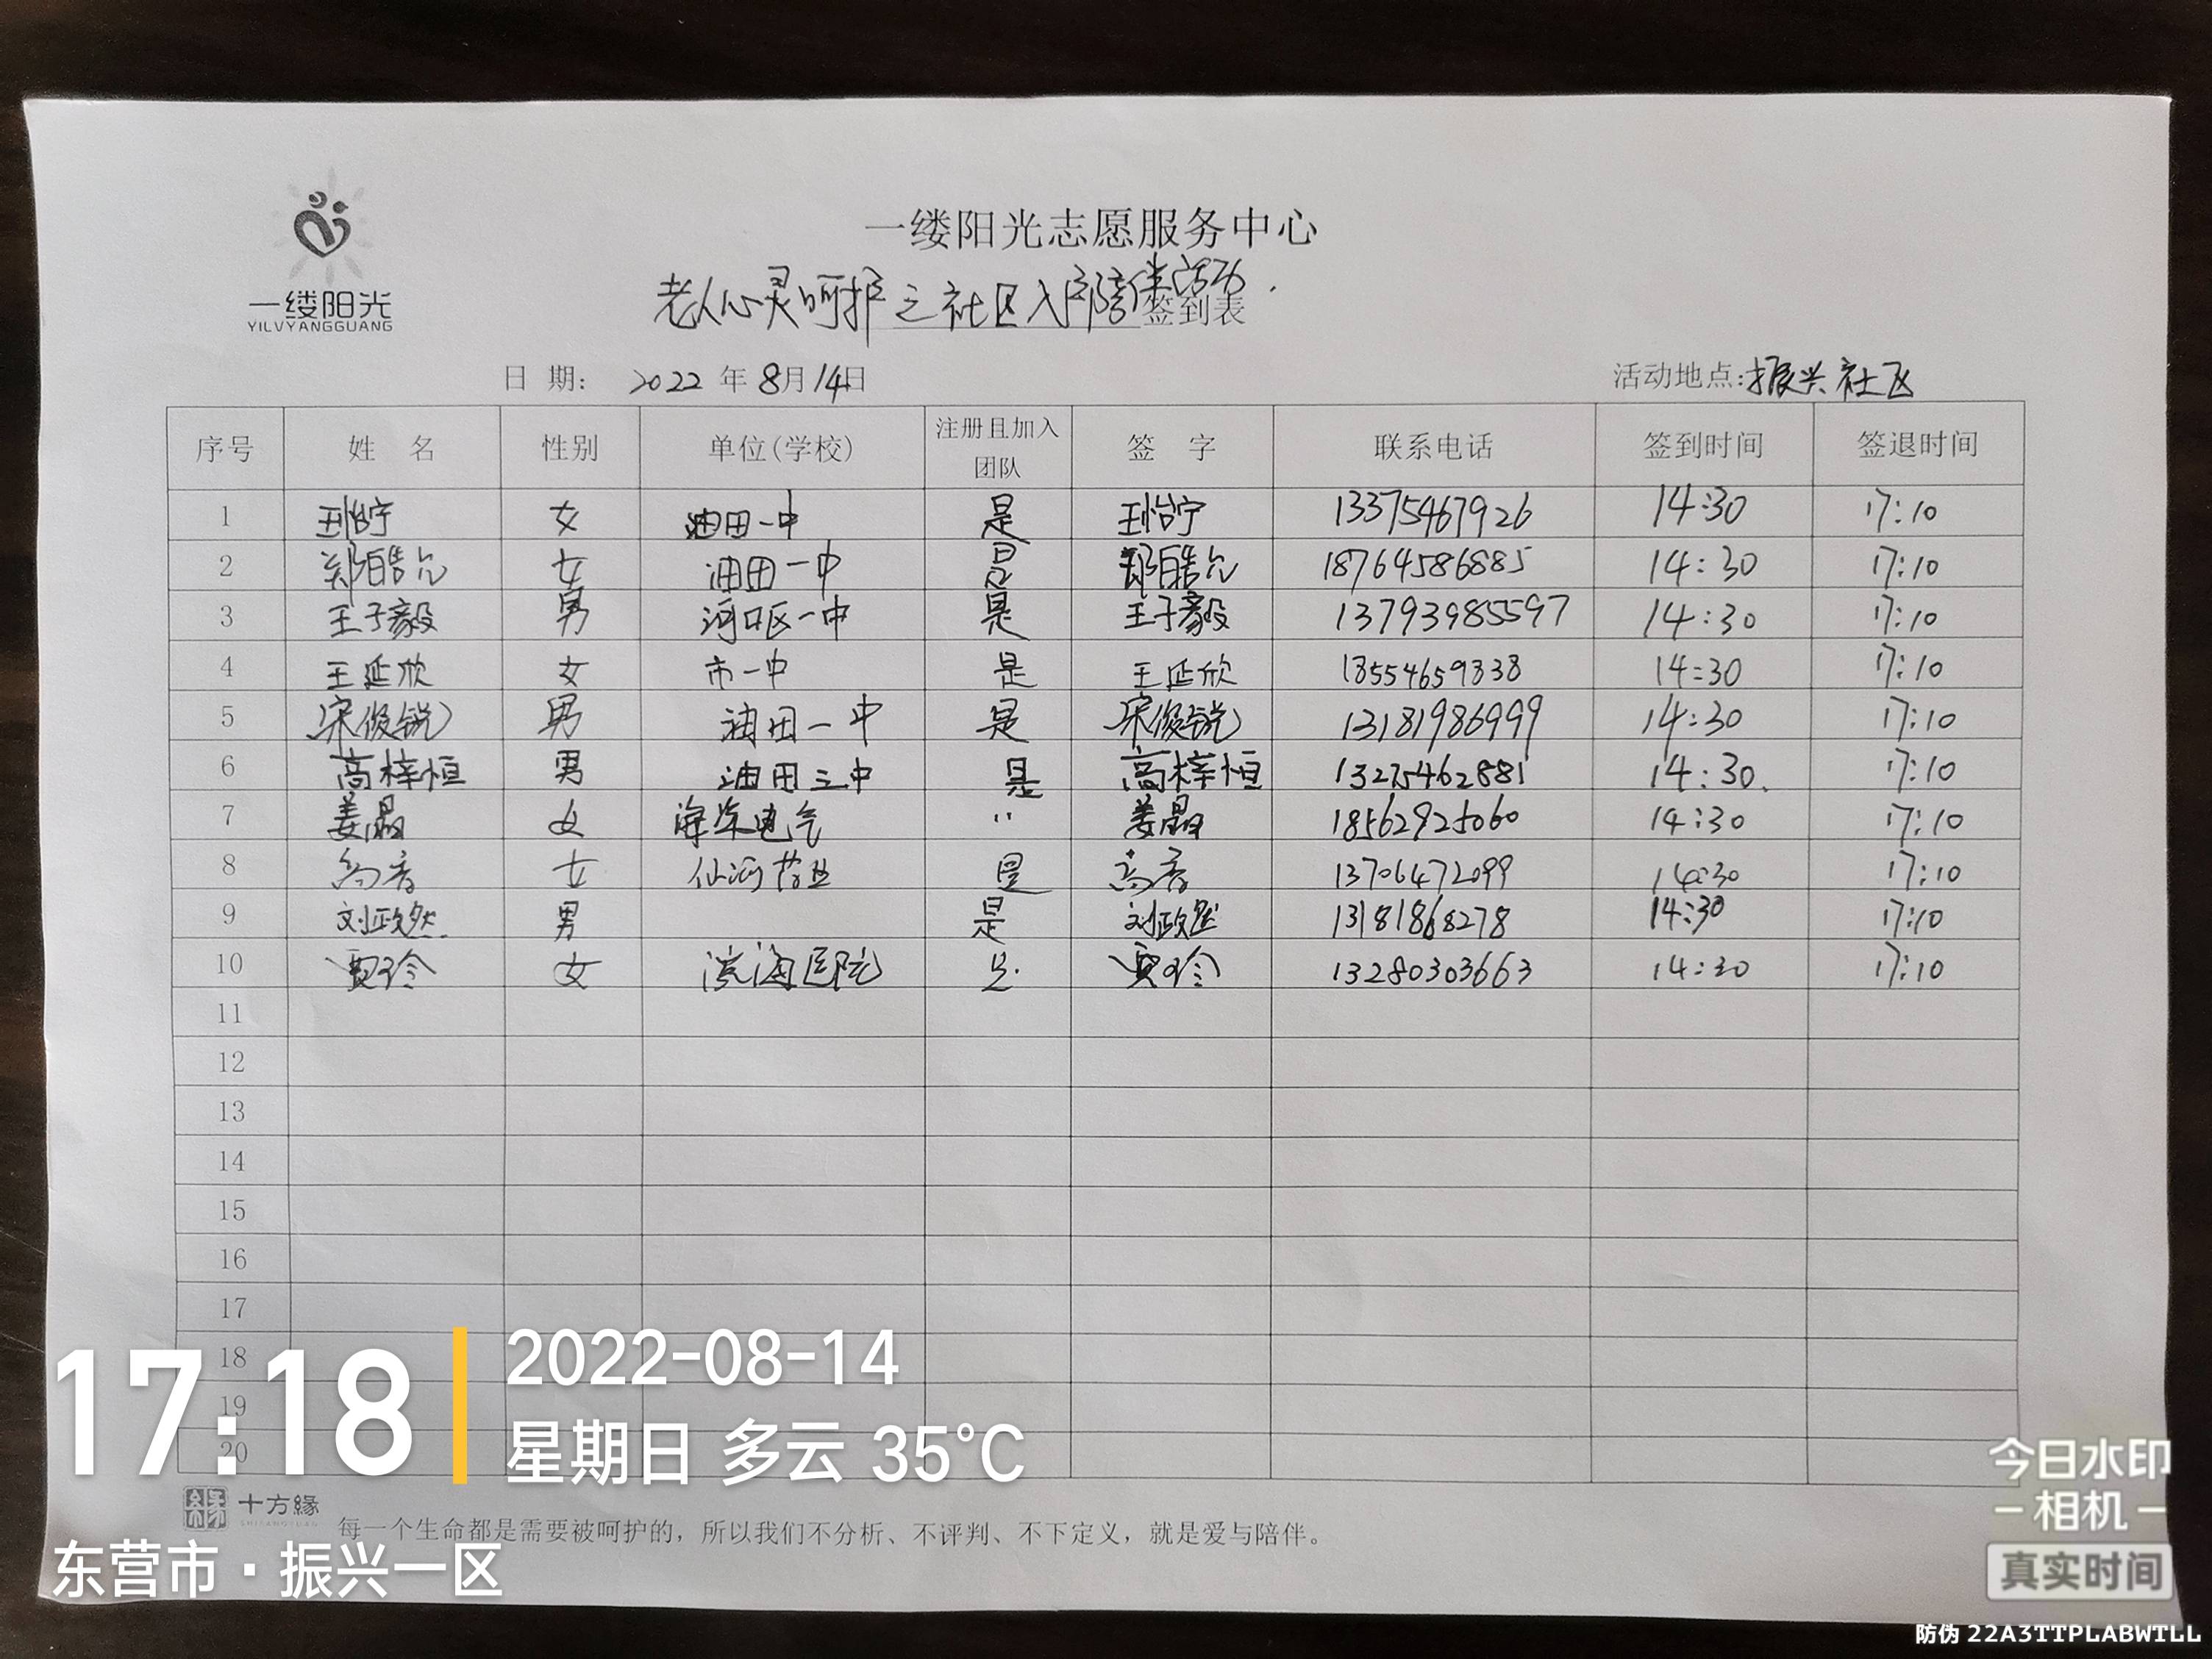 一缕阳光
YILVYANGGUANG
一缕阳光志愿服务中心
老人心灵呵护之社区入户陪伴活动.签到表
日 期: 2022 年 8月14日 活动地点:振兴社区
序号 姓 名 性别 单位(学校) 注册且加入团队 签 字 联系电话 签到时间 签退时间
1 王怡宁 女 油田一中 是 王怡宁 13375467926 14:30 17:10
2 郑皓允 女 油田一中 是 郑皓允 18764586885 14:30 17:10
3 王子毅 男 河口区一中 是 王子毅 13793985597 14:30 17:10
4 王延欣 女 市一中 是 王延欣 18554659838 14:30 17:10
5 宋俊锐 男 油田一中 是 宋俊锐 13181986999 14:30 17:10
6 高梓恒 男 油田三中 是 高梓恒 13275462881 14:30. 17:10
7 姜晶 女 海荣电气 '' 姜晶 18562925060 14:30 17:10
8 高 女 仙河 是 高 13706472099 14:30 17:10
9 刘政然. 男 是 刘政然 13181868278 14:30 17:10
10 贾玲 女 滨海医院 是. 贾玲 13280303663 14:30 17:10
11
12
13
14
15
16
17
18
19
20
十方緣
每一个生命都是需要被呵护的，所以我们不分析、不评判、不下定义，就是爱与陪伴。
17:18
2022-08-14
星期日 多云 35°C
东营市·振兴一区
今日水印
相机
真实时间
防伪 22A3TTPLABWTLL